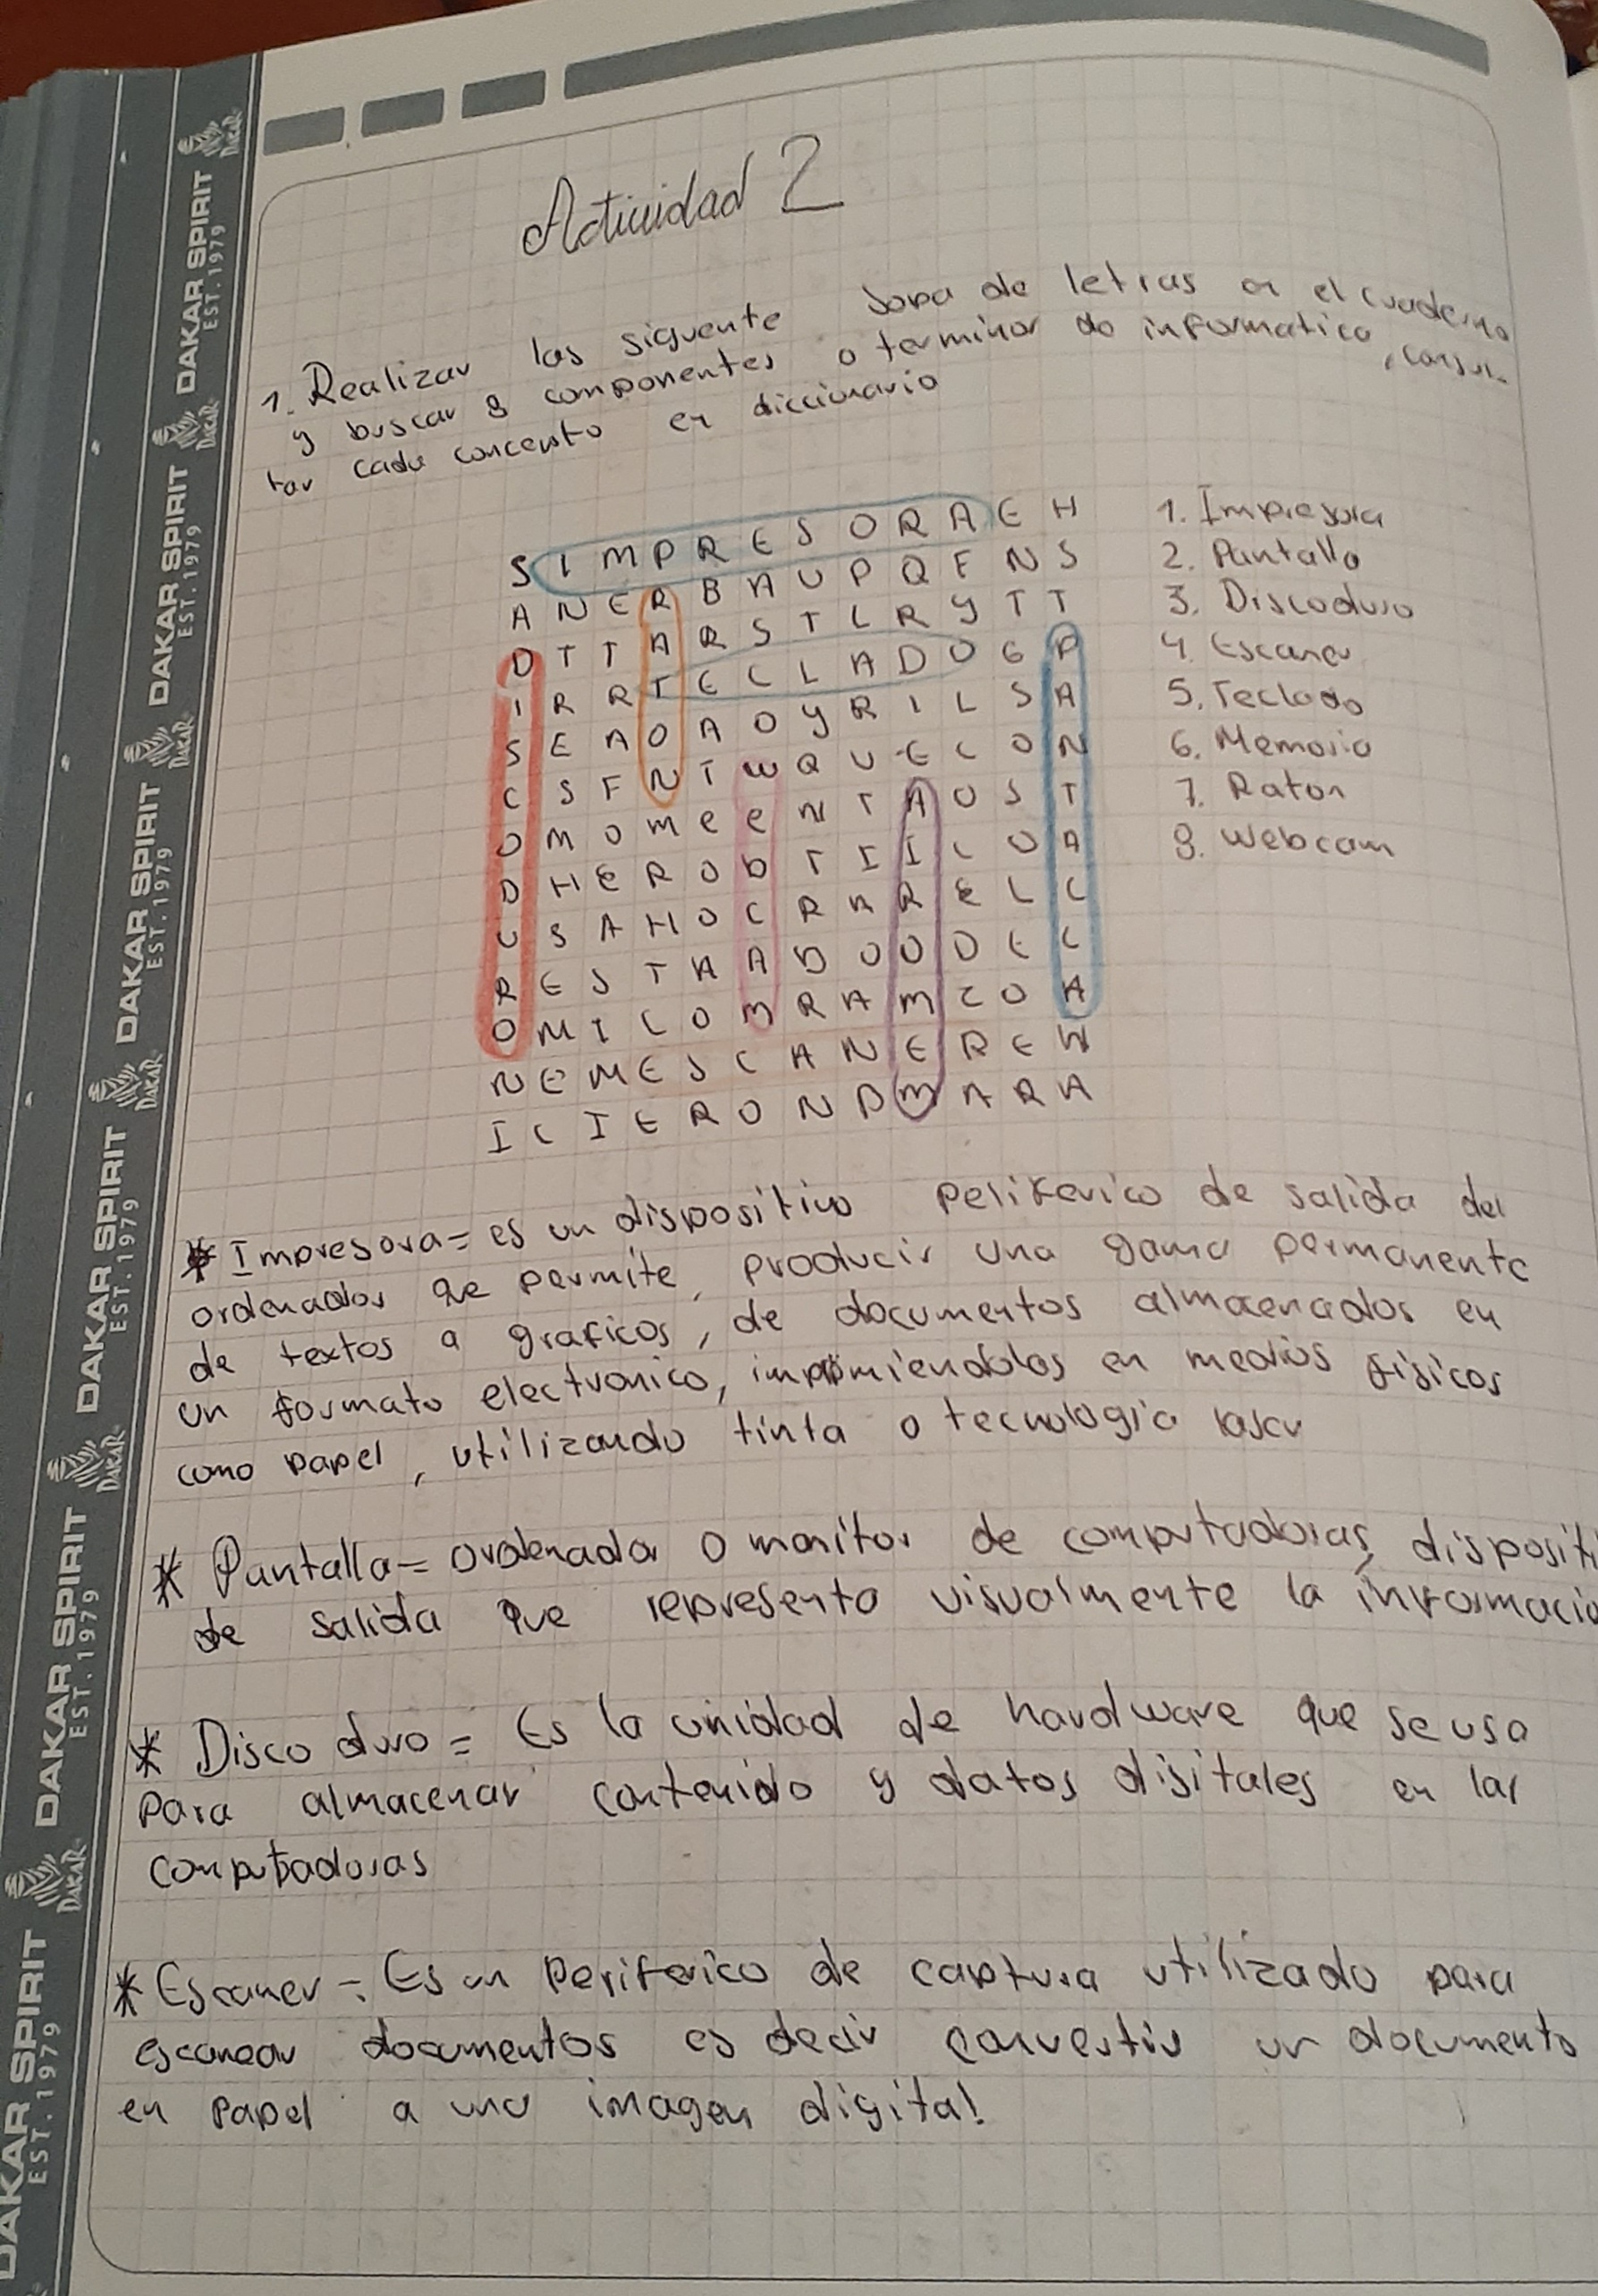 Actividad 2
1. Realizar las siguente sopa de letras en el cuaderno
y buscar 8 componentes o terminos de informatica, consul-
tar cada concepto en diccionario
S I M P R E S O R A E H
A N E R B A U P Q F N S
D T T A R S T L R Y T T
I R R T E C L A D O G P
S E A O A O Y R I L S A
C S F N T W Q U E C O N
O M O M e e N T A O S T
D H E R O b T I I L O A
U S A H O C R A R E L L
R E S T A A D O O D E L
O M I C O M R A M Z O A
N E M E S C A N E R E W
I C I E R O N D M A R A
1. Impresora
2. Pantalla
3. Discoduro
4. Escaner
5. Teclado
6. Memoria
7. Raton
8. Webcam
* Impresora = es un dispositivo peliferico de salida del
ordenador qe permite, producir una gama permanente
de textos a graficos, de documentos almacenados en
un formato electronico, imprimiendolos en medios fisicos
como papel, utilizando tinta o tecnologia laser
* Pantalla = ordenador o monitor de computadoras, dispositi
de salida que representa visualmente la informacio
* Disco duro = Es la unidad de hardware que se usa
Para almacenar contenido y datos disitales en las
computadoras
* Escaner = Es un Periferico de captura utilizado para
escanear documentos es decir convertir un documento
en papel a una imagen digital
DAKAR SPIRIT
EST. 1979
DAKAR
DAKAR SPIRIT
EST. 1979
DAKAR
DAKAR SPIRIT
EST. 1979
DAKAR
DAKAR SPIRIT
EST. 1979
DAKAR
DAKAR SPIRIT
EST. 1979
DAKAR
DAKAR SPIRIT
EST. 1979
DAKAR
DAKAR SPIRIT
EST. 1979